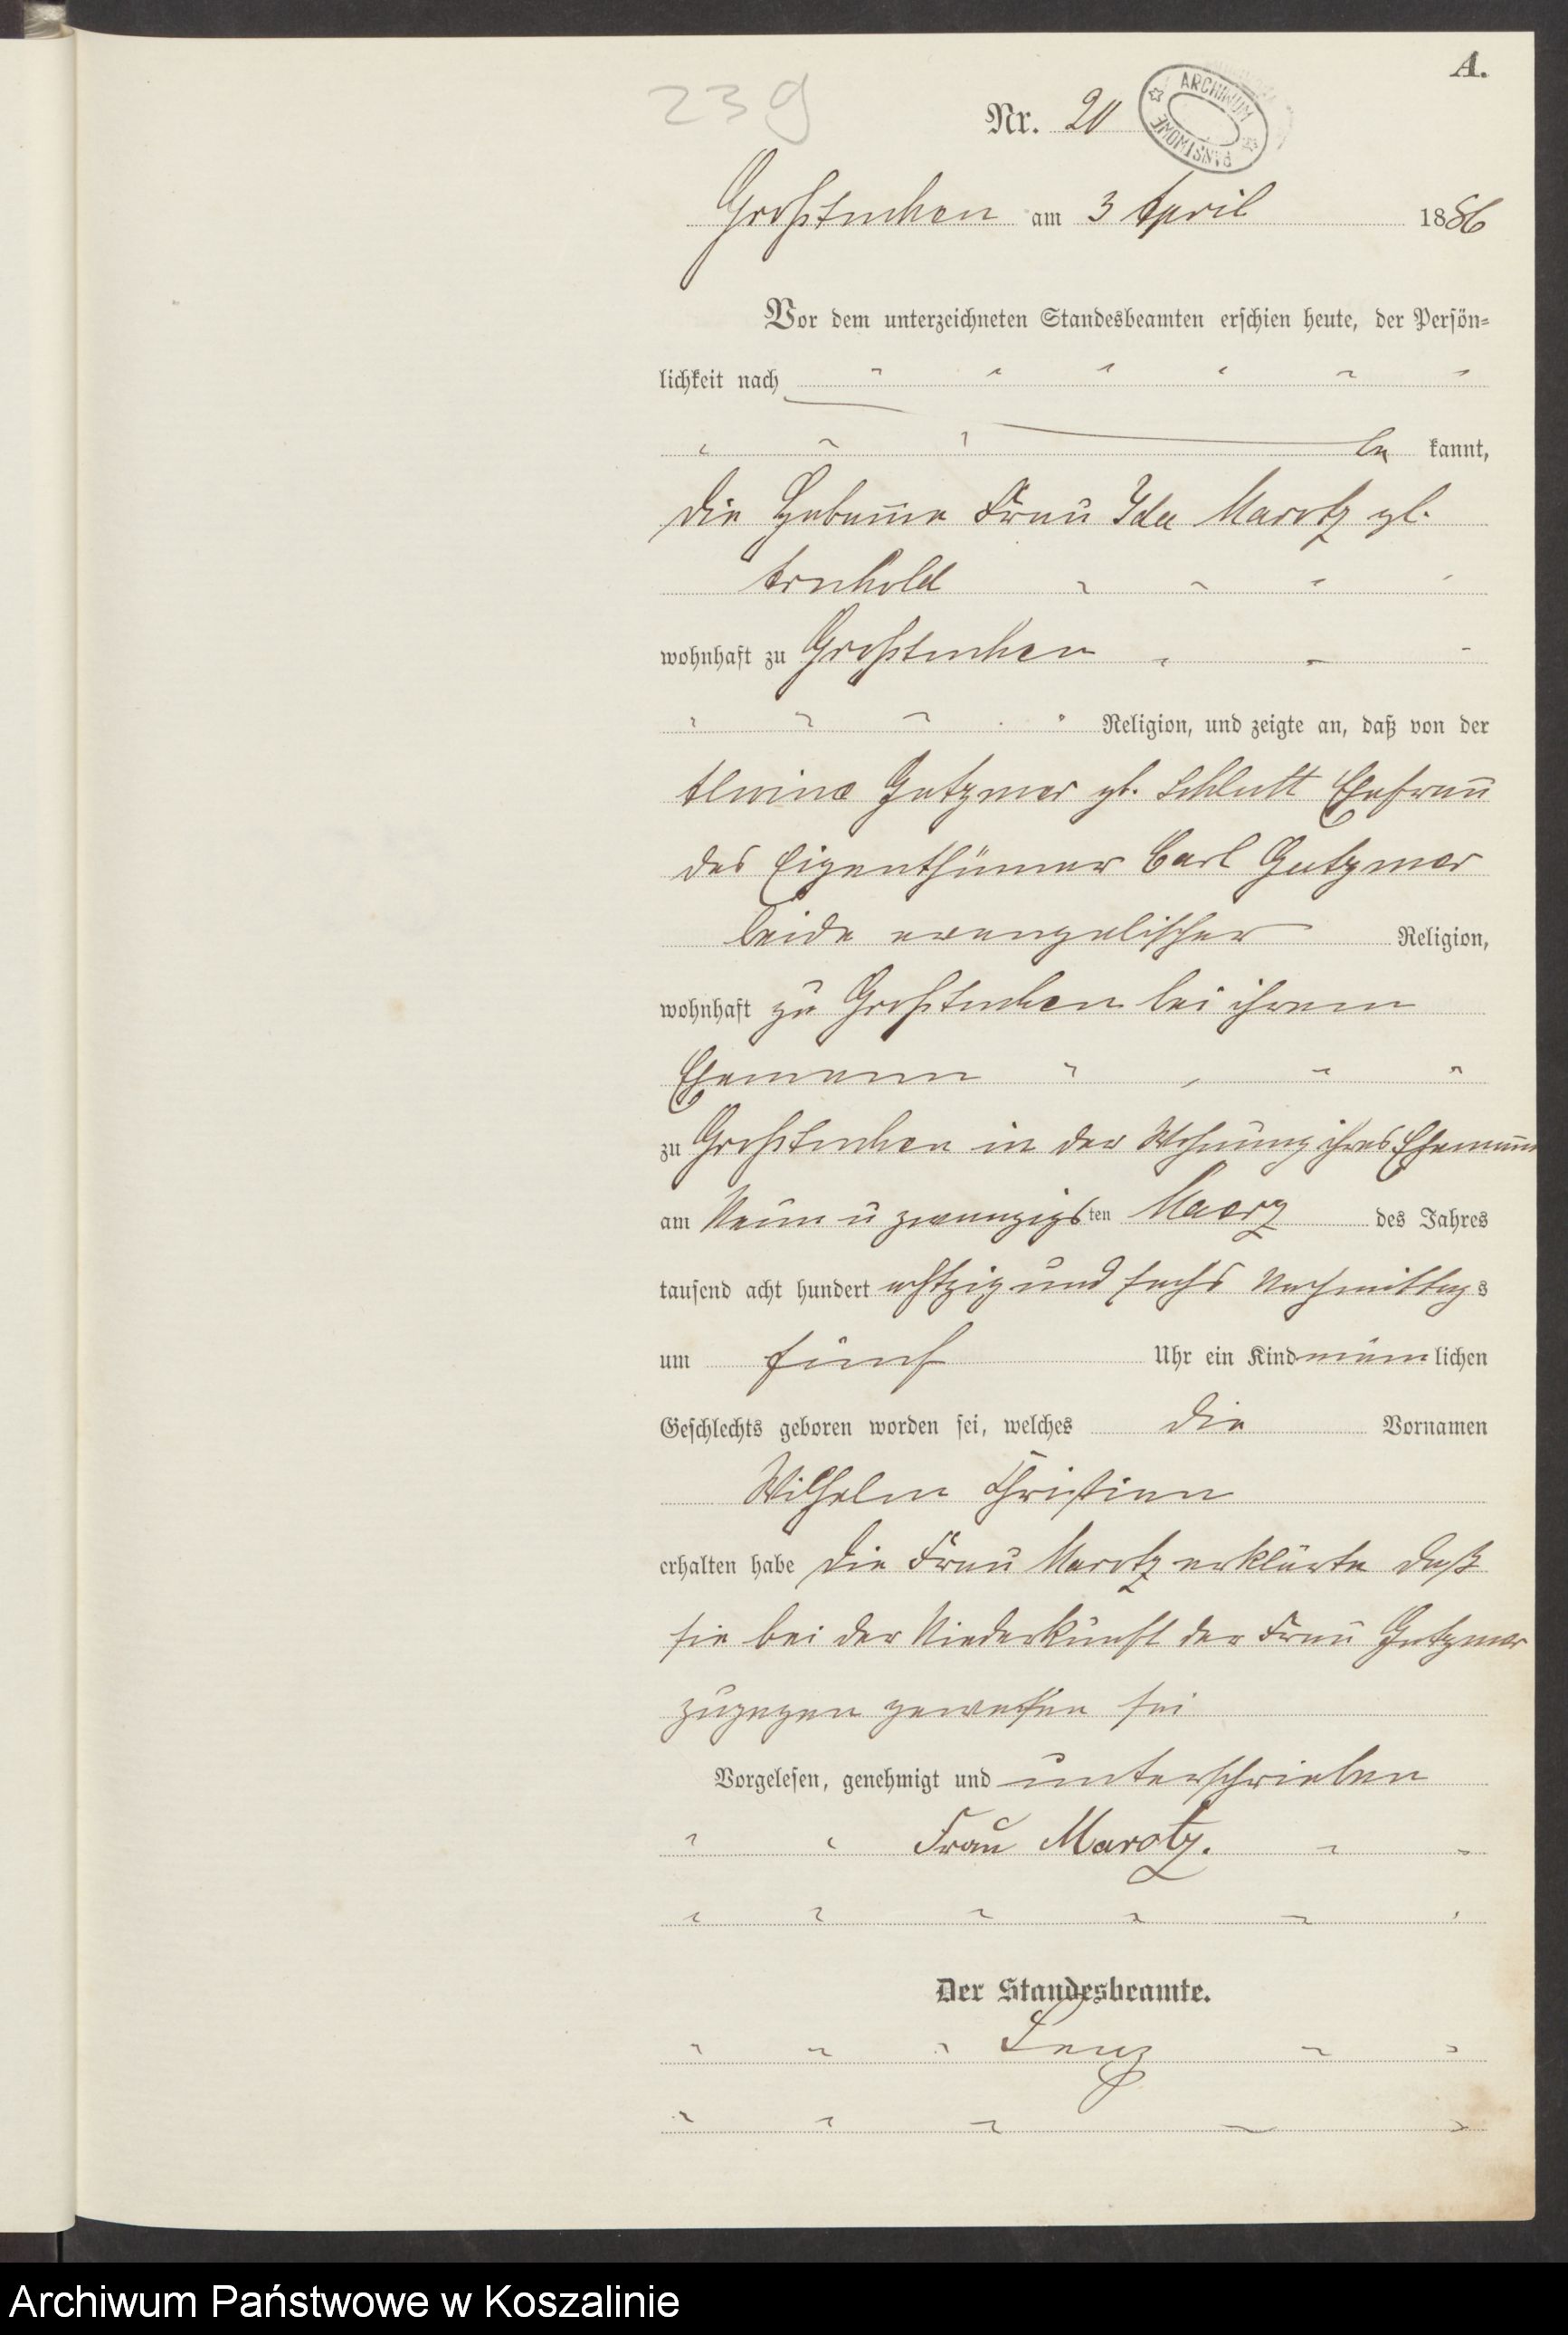 A.
239
Nr. 20
ARCHIWUM PAŃSTWOWE
Großtuchen am 3 April 1886
Vor dem unterzeichneten Standesbeamten erschien heute, der Persön=
lichkeit nach
be kannt,
die Hebamme Frau Ida Marotz gb.
wohnhaft zu Großtuchen
Religion, und zeigte an, daß von der
Alwine Gutzmer gb. Schlutt Ehefrau
des Eigenthümer Carl Gutzmer
beide evangelischer Religion,
wohnhaft zu Großtuchen bei ihrem
Ehemann
zu Großtuchen in der Wohnung ihres Ehemann
am Neun u zwanzigsten Maerz des Jahres
tausend acht hundert achtzig und sechs Nachmittags
um fünf Uhr ein Kind männlichen
Geschlechts geboren worden sei, welches die Vornamen
Wilhelm Christian
erhalten habe die Frau Marotz erklärte daß
sie bei der Niederkunft der Frau Gutzmer
zugegen gewesen sei
Vorgelesen, genehmigt und unterschrieben
Frau Marotz.
Der Standesbeamte.
Lenz
Archiwum Państwowe w Koszalinie